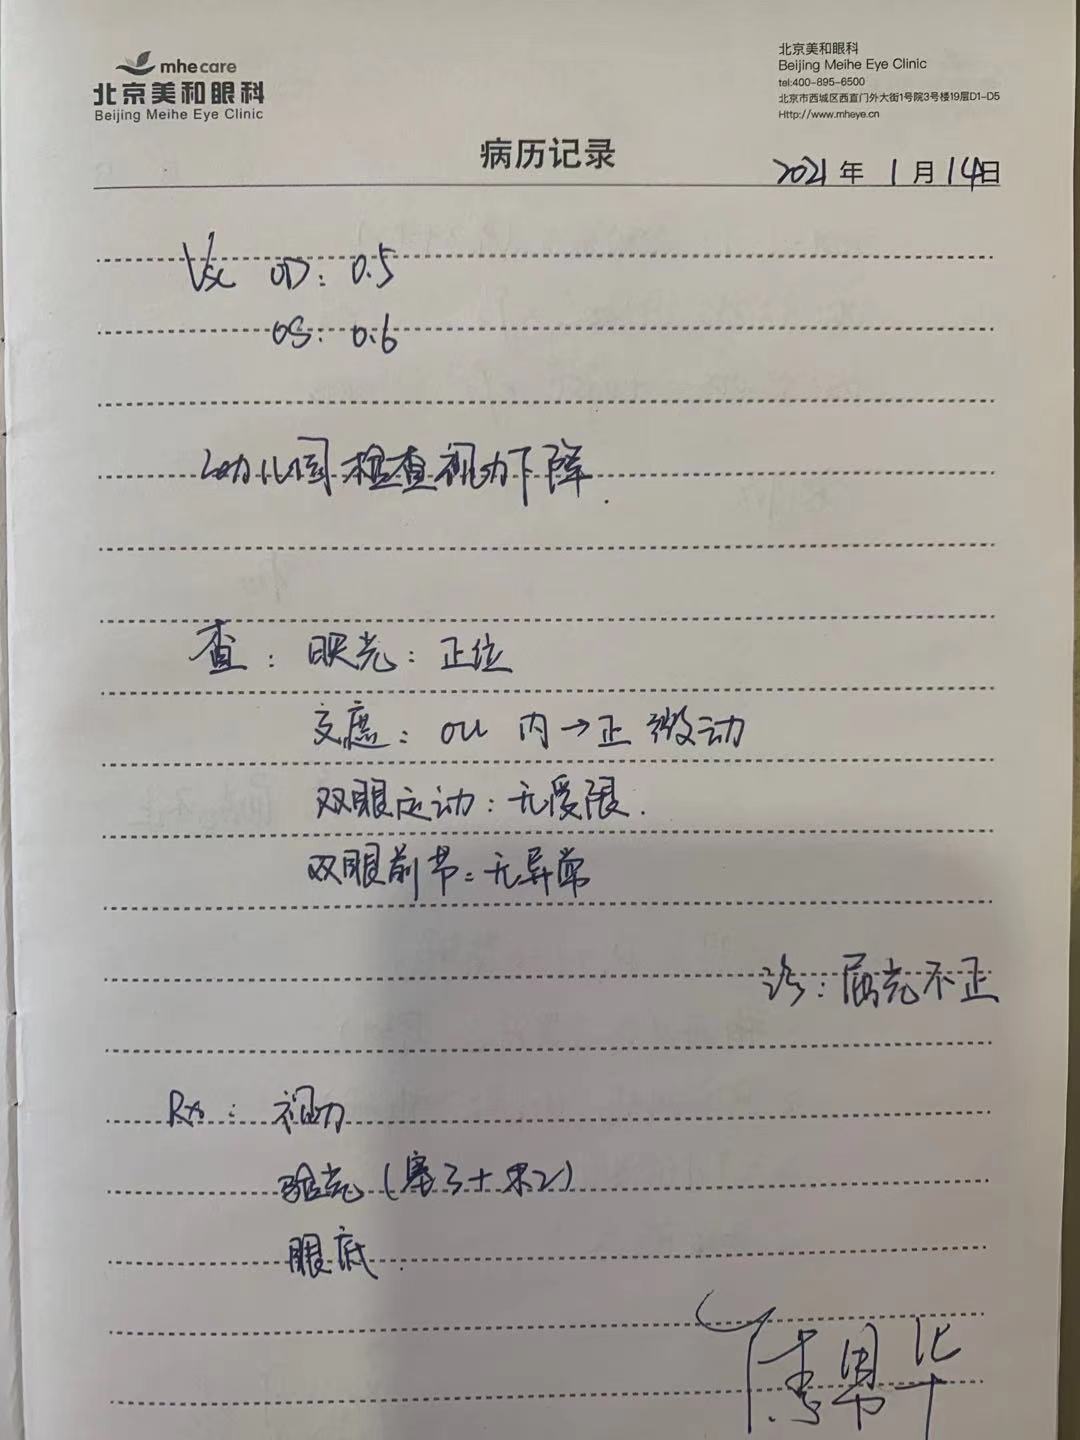 mhecare
北京美和眼科
Beijing Meihe Eye Clinic
北京美和眼科
Beijing Meihe Eye Clinic
tel:400-895-6500
北京市西城区西直门外大街1号院3号楼19层D1-D5
Http://www.mheye.cn
病历记录
2021年 1月14日
Vsc OD: 0.5
OS: 0.6
幼儿园检查视力下降.
查: 映光: 正位
交遮: OU 内→正 微动
双眼运动: 无受限.
双眼前节: 无异常
诊: 屈光不正
Rx: 视力
验光(塞3+果2)
眼底.